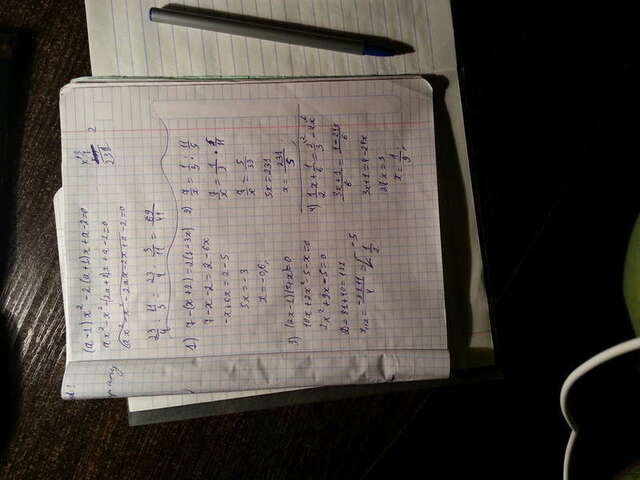 (a-1)x²-2(a+1)x+a-2=0
ax²-x²-(2a+2)x+a-2=0
ax²-x²-2ax-2x+a-2=0
23/4 : 11/3 = 23/4 · 3/11 = 69/44
1) 7-(x+2)=2(1-3x)
7-x-2=2-6x
-x+6x=2-5
5x=-3
x=-0,6,
2) 7/x = 1/3 : 11/5
7/x = 1/3 · 5/11
7/x = 5/33
5x=231
x = 231/5
3) (2x-1)(5+x)=0
10x+2x²-5-x=0
2x²+9x-5=0
D=81+40=121
-5
1/2
4)
3x+1=4-24x
x = 1/9,